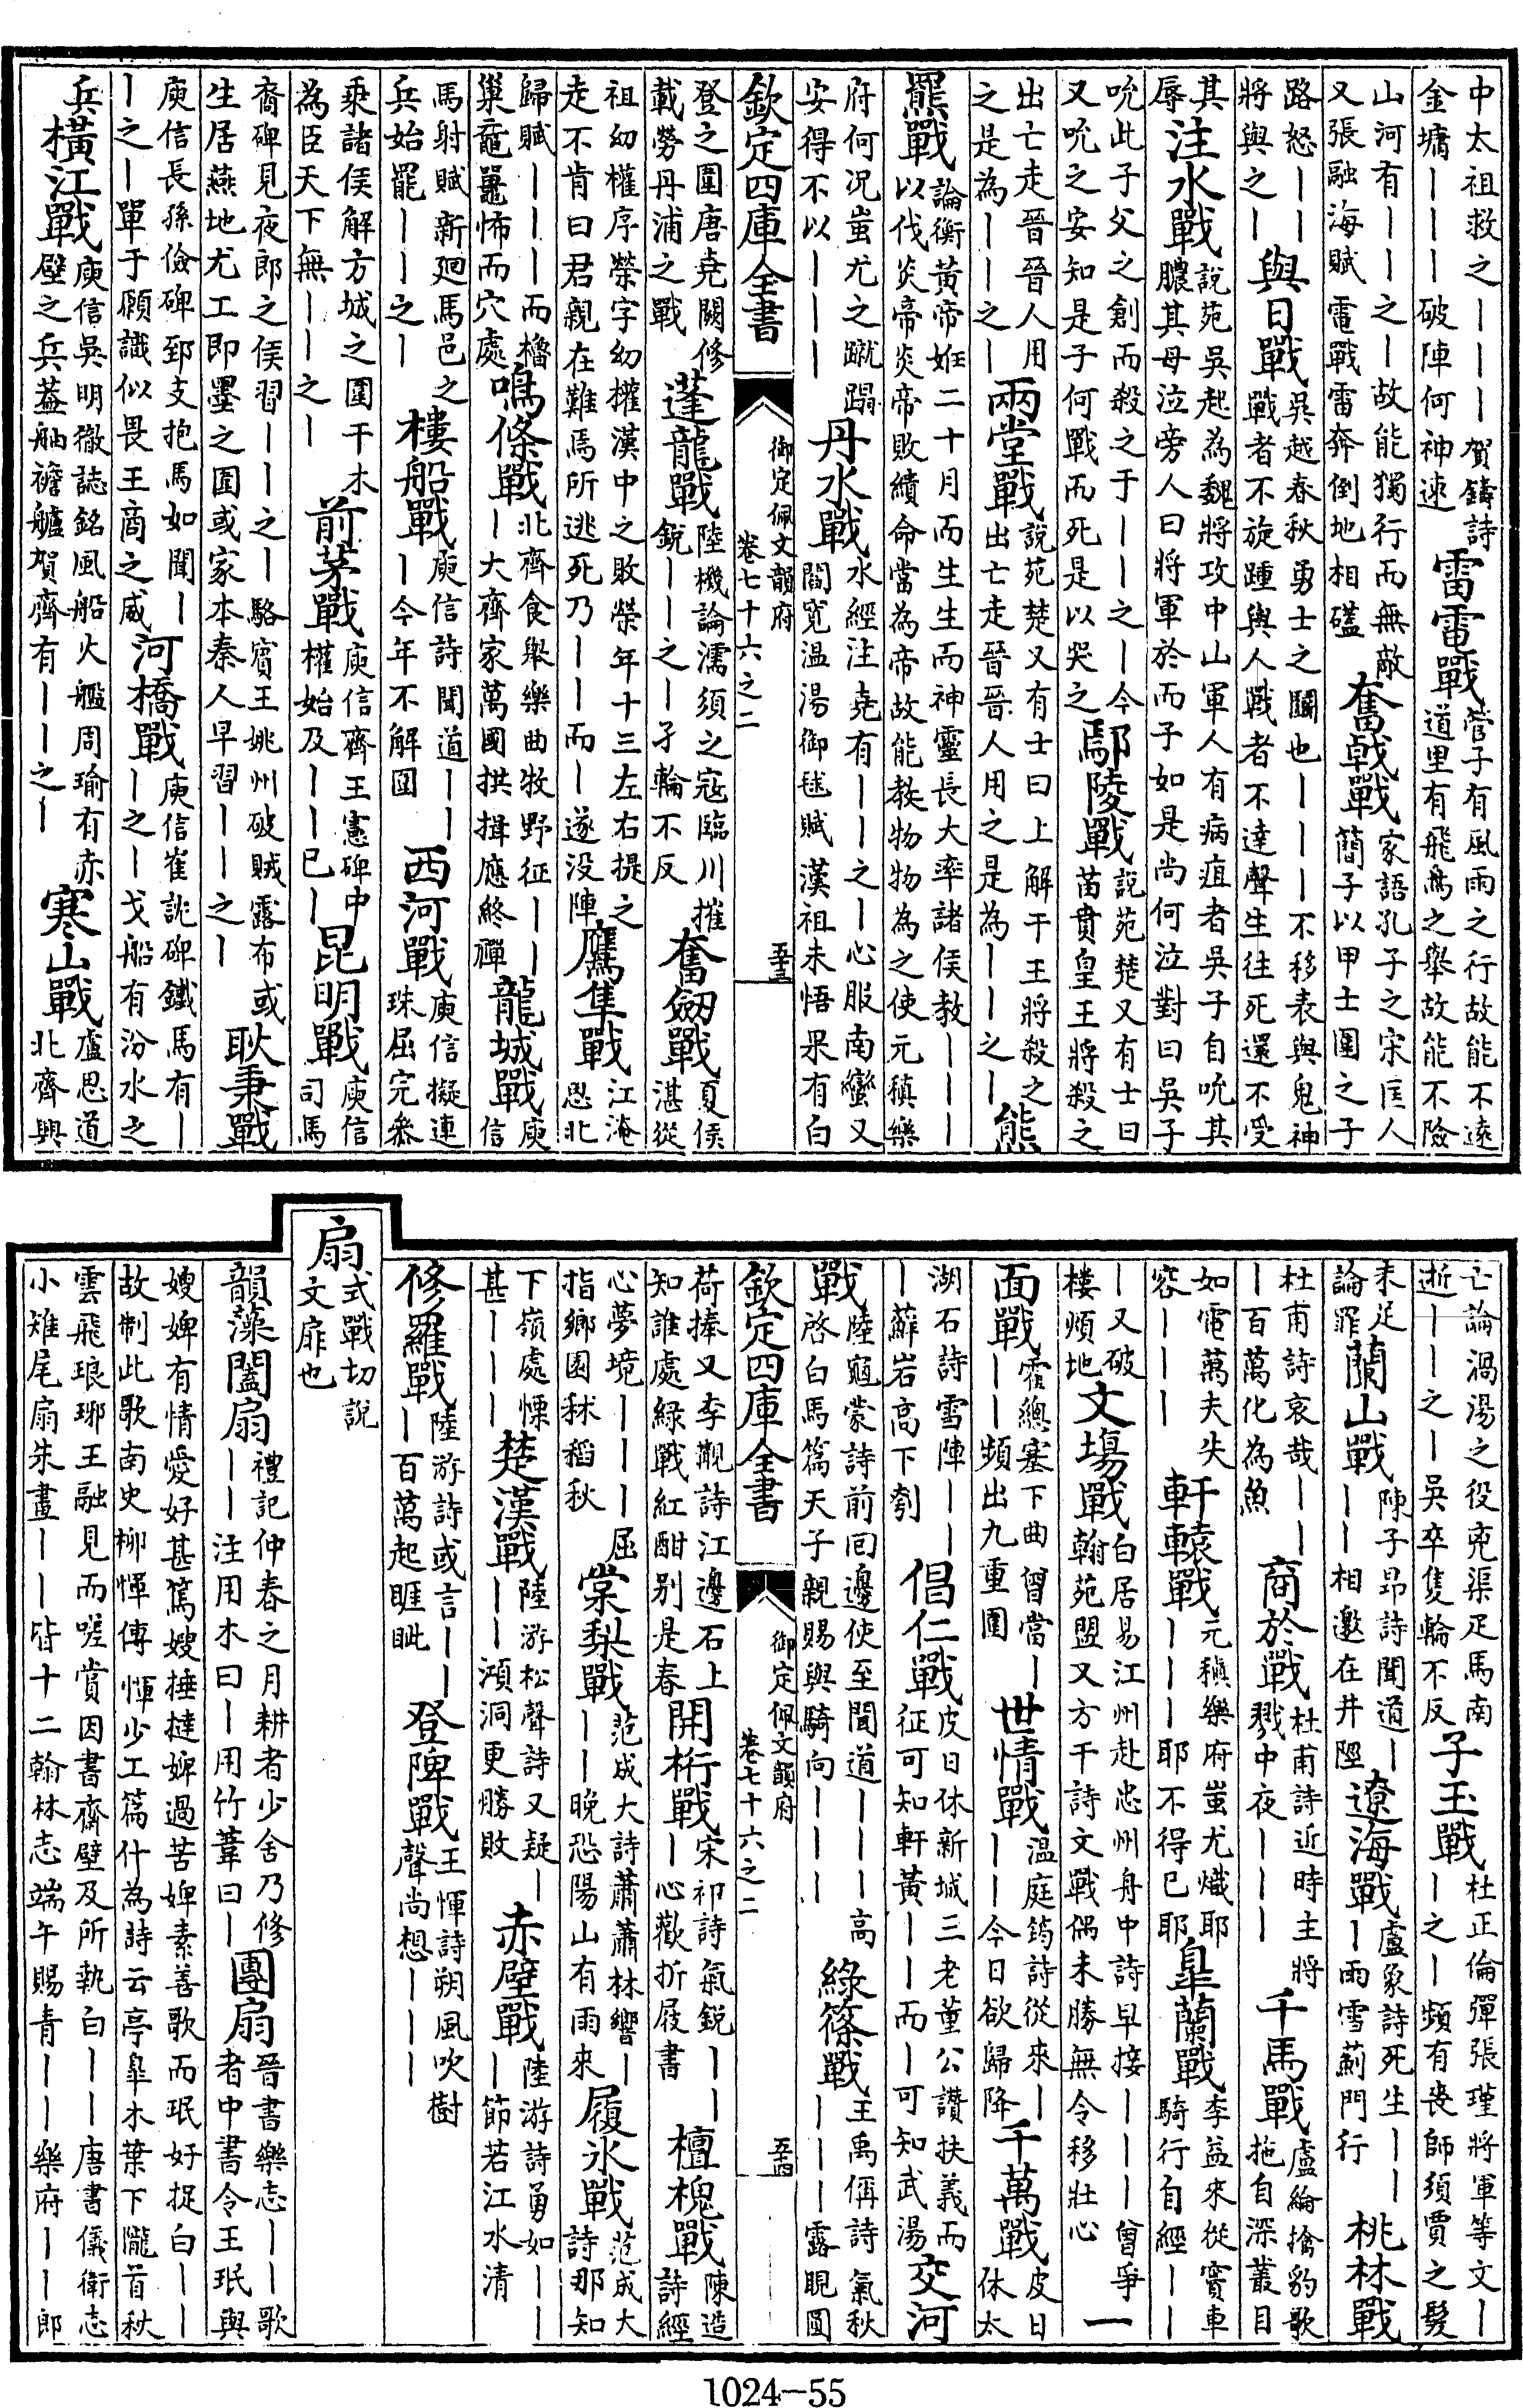 中太祖救之｜｜｜｜賀鑄詩金墉｜｜｜｜破陣何神速雷電戰管子有風雨之行故能不遠道里有飛鳥之舉故能不險
山河有｜｜｜之｜故能獨行而無敵又張融海賦電戰雷奔倒地相磕奮戟戰家語孔子之宋匡人簡子以甲士圍之子
路怒｜｜將與之｜與日戰吳越春秋勇士之鬭也｜｜｜不移表與鬼神戰者不旋踵與人戰者不達聲生往死還不受
其辱注水戰說苑吳起為魏將攻中山軍人有病疽者吳子自吮其膿其母泣旁人曰將軍於而子如是尚何泣對曰吳子
吮此子父之創而殺之于｜｜之｜今又吮之安知是子何戰而死是以哭之鄢陵戰說苑楚又有士曰苗賁皇王將殺之
出亡走晉晉人用之是為｜｜之｜兩堂戰說苑楚又有士曰上解于王將殺之出亡走晉晉人用之是為｜｜之｜熊
羆戰論衡黃帝姙二十月而生生而神靈長大率諸侯教｜｜｜以伐炎帝炎帝敗績命當為帝故能教物物為之使元稹樂
府何況蚩尤之蹴蹋安得不以｜｜｜丹水戰水經注堯有｜｜之｜心服南蠻又閻寬温湯御毬賦漢祖未悟果有白
欽定四庫全書
御定佩文韻府
卷七十六之二
五十三
登之圍唐堯闕修載勞丹浦之戰蓬龍戰陸機論濡須之寇臨川摧銳｜｜之｜孑輪不反奮劒戰夏侯湛從
祖幼權序榮字幼權漢中之敗榮年十三左右提之走不肯曰君親在難焉所逃死乃｜｜而｜遂没陣鷹隼戰江淹思北
歸賦｜｜｜而櫓巢黿鼉怖而穴處鳴條戰北齊食舉樂曲牧野征｜｜｜大齊家萬國拱揖應終禪龍城戰庾信
馬射賦新廻馬邑之兵始罷｜｜之｜樓船戰庾信詩聞道｜｜｜今年不解圍西河戰庾信擬連珠屈完參
乘諸侯解方城之圍干木為臣天下無｜｜之｜前茅戰庾信齊王憲碑中權始及｜｜已｜昆明戰庾信司馬
裔碑見夜郎之侯習｜｜之｜駱賓王姚州破賊露布或生居燕地尤工即墨之圍或家本秦人早習｜｜之｜耿秉戰
庾信長孫儉碑郅支抱馬如聞｜｜之｜單于願識似畏王商之威河橋戰庾信崔訦碑鐵馬有｜｜之｜戈船有汾水之
兵橫江戰庾信吳明徹誌銘風船火艦周瑜有赤壁之兵蓋舳襜艫賀齊有｜｜之｜寒山戰盧思道北齊興
亡論渦湯之役兖渠疋馬南逝｜｜之｜吳卒隻輪不反子玉戰杜正倫彈張瑾將軍等文｜｜之｜頻有丧師須賈之髮
未足論罪蘭山戰陳子昻詩聞道｜｜｜相邀在井陘遼海戰盧象詩死生｜｜｜雨雪薊門行桃林戰
杜甫詩哀哉｜｜｜百萬化為魚商於戰杜甫詩近時主將戮中夜｜｜｜千馬戰盧綸擒豹歌拖自深叢目
如電萬夫失容｜｜｜軒轅戰元稹樂府蚩尤熾耶｜｜｜耶不得已耶臯蘭戰李益來從竇車騎行自經｜｜
｜又破樓煩地文塲戰白居易江州赴忠州舟中詩早接｜｜｜曾爭翰苑盟又方干詩文戰偶未勝無令移壯心一
面戰霍總塞下曲曾當｜｜｜頻出九重圍世情戰温庭筠詩從來｜｜｜今日欲歸降千萬戰皮日休太
湖石詩雪陣｜｜｜蘚岩高下刳倡仁戰皮日休新城三老董公讚扶義而征可知軒黃｜｜而｜可知武湯交河
戰陸龜蒙詩前回邊使至聞道｜｜｜高啓白馬篇天子親賜與騎向｜｜｜綠篠戰王禹偁詩氣秋｜｜｜露睍圓
欽定四庫全書
御定佩文韻府
卷七十六之二
五十四
荷捧又李覯詩江邊石上知誰處綠戰紅酣别是春開桁戰宋祁詩氣鋭｜｜｜心歡折屐書檀槐戰陳造詩經
心夢境｜｜｜屈指鄉園秫稻秋棠梨戰范成大詩蕭蕭林響｜｜｜晚恐陽山有雨來履氷戰范成大詩那知
下嶺處慄甚｜｜｜楚漢戰陸游松聲詩又疑｜｜｜澒洞更勝敗赤壁戰陸游詩勇如｜｜｜節若江水清
修羅戰陸游詩或言｜｜｜百萬起睚眦登陴戰王惲詩朔風吹樹聲尚想｜｜｜
扇式戰切說文扉也
韻藻闔扇禮記仲春之月耕者少舍乃修｜｜注用木曰｜用竹葦曰｜團扇晉書樂志｜｜歌者中書令王珉與
嫂婢有情愛好甚篤嫂捶撻婢過苦婢素善歌而珉好捉白｜｜故制此歌南史柳惲傳惲少工篇什為詩云亭臯木葉下隴首秋
雲飛琅琊王融見而嗟賞因書齋壁及所執白｜｜唐書儀衛志小雉尾扇朱畫｜｜皆十二翰林志端午賜青｜｜樂府｜｜郎
1024—55